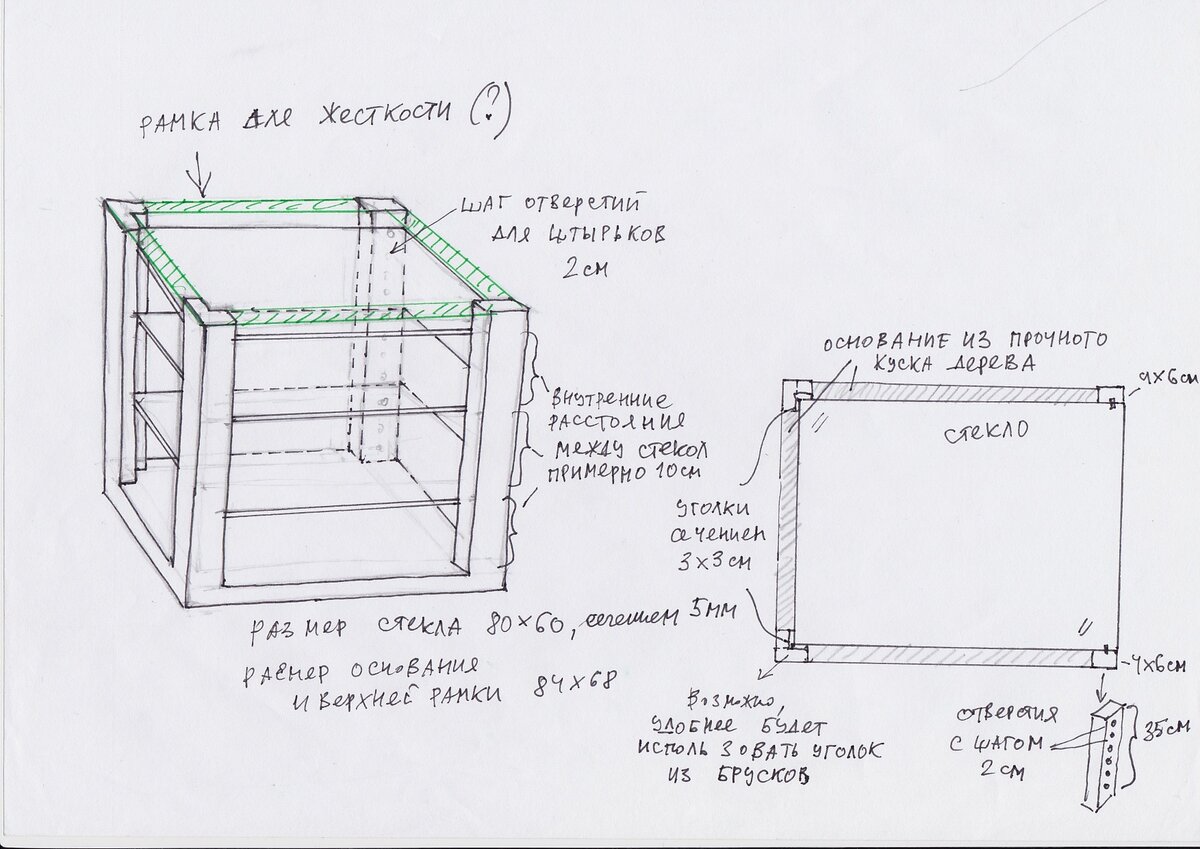 РАМКА ДЛЯ ЖЕСТКОСТИ (?)
ШАГ ОТВЕРСТИЙ
ДЛЯ ШТЫРЬКОВ
2 см
ВНУТРЕННИЕ
РАССТОЯНИЕ
МЕЖДУ СТЕКОЛ
ПРИМЕРНО 10 см
РАЗМЕР СТЕКЛА 80×60, сечением 5 мм
РАЗМЕР ОСНОВАНИЯ
И ВЕРХНЕЙ РАМКИ 84×68
ОСНОВАНИЕ ИЗ ПРОЧНОГО
КУСКА ДЕРЕВА
4×6 см
СТЕКЛО
УГОЛКИ
сечением
3×3 см
4×6 см
Возможно,
УДОБНЕЕ БУДЕТ
ИСПОЛЬЗОВАТЬ УГОЛОК
ИЗ БРУСКОВ
ОТВЕРСТИЯ
С ШАГОМ
2 см
35 см